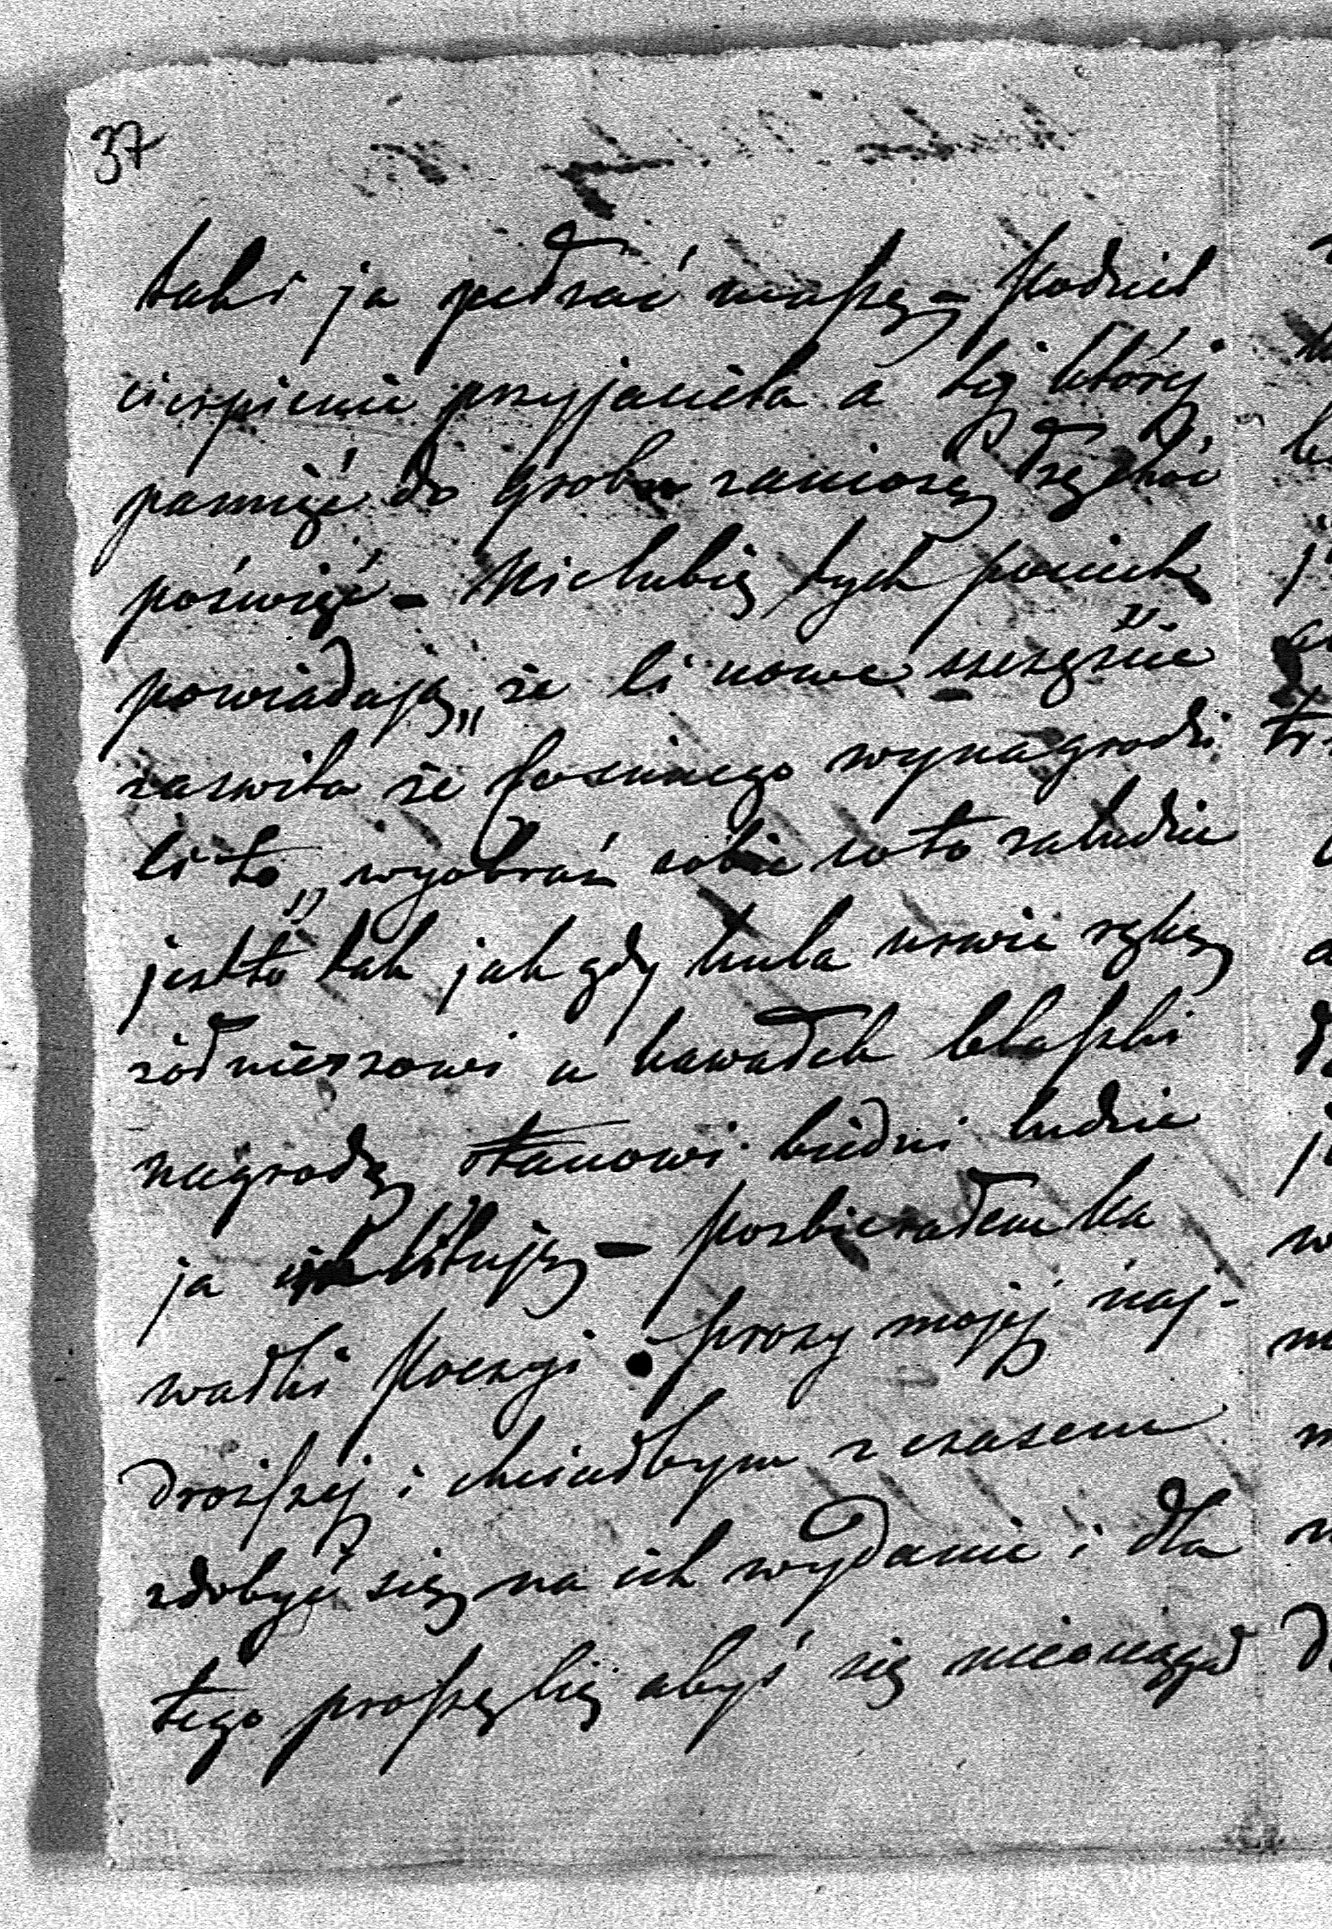 37
taki ja pędzać muszę - Podziel
cierpienie przyjaciela a tej której
pamięć do grobu zaniosę łzę choć
poświęć - Nielubię tych pociech
powiadają „że Ci nowe szczęście
zaświta że losu niego wynagrodzi
Ci to„ wyobraź sobie coto za ludzie
jestto tak jak gdy kula urwie rękę
żołnierzowi a kawałek blaszki
nagrodę stanowi biedni ludzie
ja ich lituję - Pozbierałem ka
wałki Poezyi i prozy mojéj naj-
droższej i chciałbym z czasem
zdobyć się na ich wydanie i dla
tego proszę Cię abyś się nieociągał